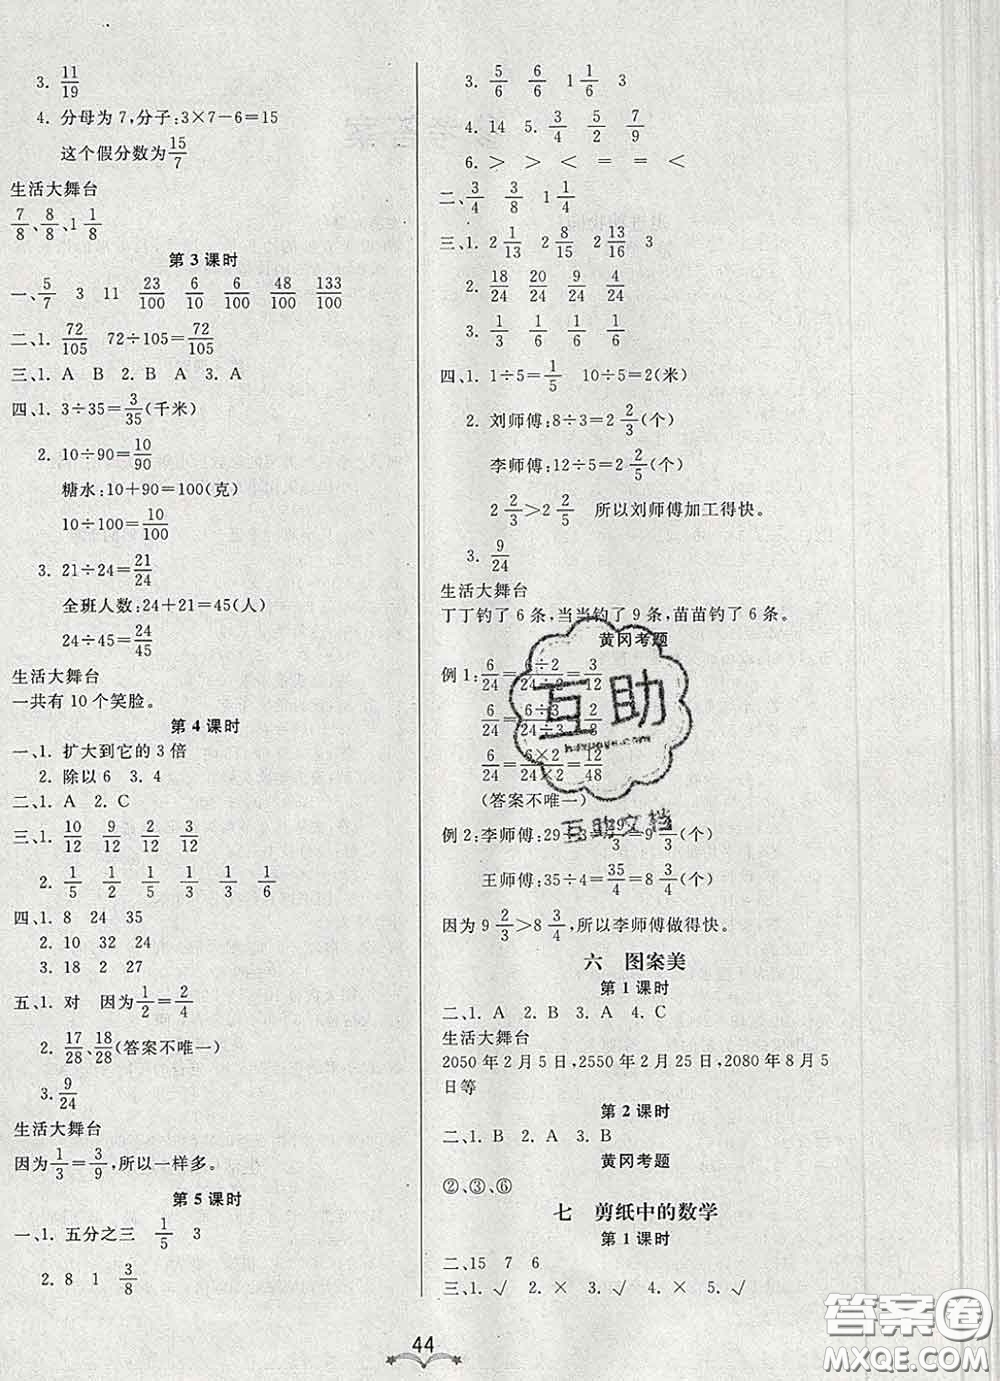 3. 11/19
4. 分母为 7,分子:3×7－6＝15
这个假分数为15/7
生活大舞台
7/8、8/8、1 1/8
第 3 课时
一、5/7 3 11 23/100 6/10 6/100 48/100 133/100
二、1. 72/105 72÷105＝72/105
三、1. A B 2. B A 3. A
四、1. 3÷35＝3/35(千米)
2. 10÷90＝10/90
糖水:10＋90＝100(克)
10÷100＝10/100
3. 21÷24＝21/24
全班人数:24＋21＝45(人)
24÷45＝24/45
生活大舞台
一共有 10 个笑脸。
第 4 课时
一、1. 扩大到它的 3 倍
2. 除以 6 3. 4
二、1. A 2. C
三、1. 10/12 9/12 2/12 3/12
2. 1/5 1/5 1/5 1/2 1/6
四、1. 8 24 35
2. 10 32 24
3. 18 2 27
五、1. 对 因为1/2＝2/4
2. 17/28、18/28(答案不唯一)
3. 9/24
生活大舞台
因为1/3＝3/9,所以一样多。
第 5 课时
一、1. 五分之三 1/5 3
2. 8 1 3/8
3. 5/6 6/6 1 1/6 3
4. 14 5. 3/4 5/2 7/9
6. ＞ ＞ ＜ ＝ ＝ ＜
二、3/4 3/8 1 1/4
三、1. 2 1/13 2 8/15 2 2/16 3
2. 18/24 20/24 9/24 4/24
3. 1/4 1/6 1/6 1/6
四、1. 1÷5＝1/5 10÷5＝2(米)
2. 刘师傅:8÷3＝2 2/3(个)
李师傅:12÷5＝2 2/5(个)
2 2/3＞2 2/5 所以刘师傅加工得快。
3. 9/24
生活大舞台
丁丁钓了 6 条,当当钓了 9 条,苗苗钓了 6 条。
黄冈考题
例 1:6/24＝6÷2/24÷2＝3/12
6/24＝6÷3/24÷3＝2/8
6/24＝6×2/24×2＝12/48
(答案不唯一)
例 2:李师傅:29÷3＝29/3＝9 2/3(个)
王师傅:35÷4＝35/4＝8 3/4(个)
因为 9 2/3＞8 3/4,所以李师傅做得快。
六 图案美
第 1 课时
二、1. A 2. B 3. A 4. C
生活大舞台
2050 年 2 月 5 日,2550 年 2 月 25 日,2080 年 8 月 5
日等
第 2 课时
二、1. B 2. A 3. B
黄冈考题
②、③、⑥
七 剪纸中的数学
第 1 课时
二、15 7 6
三、1. √ 2. × 3. √ 4. × 5. √
44
互助
互助文档
答案圈
MXQE.COM